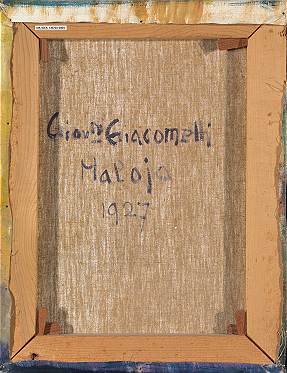 Giovni Giacometti
Maloja
1927